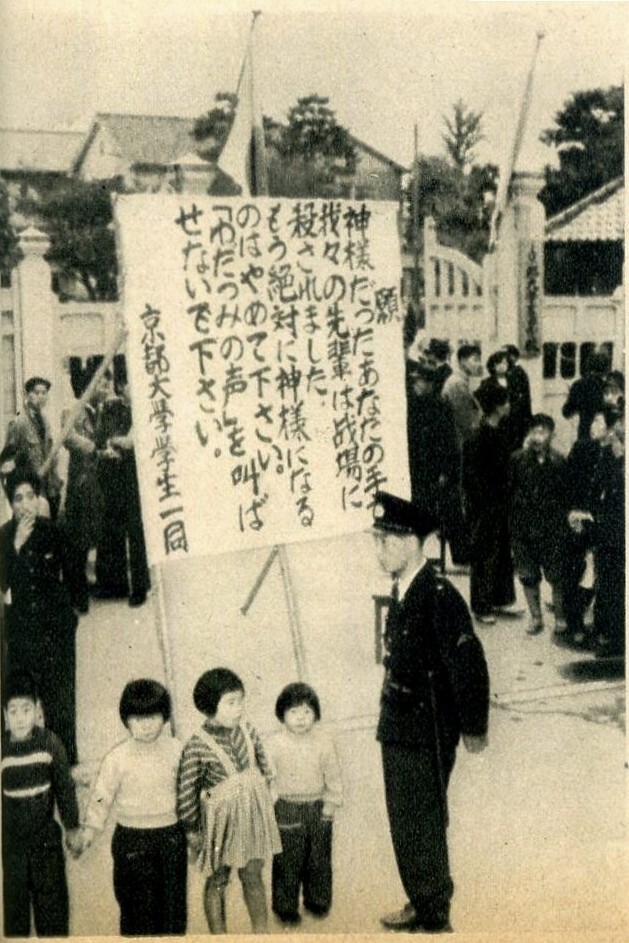 願
神様だったあなたの手で
我々の先輩は战場に
殺されました。
もう絶対に神様になる
のはやめて下さい。
「わだつみの声」を叫ば
せないで下さい。
京都大學學生一同